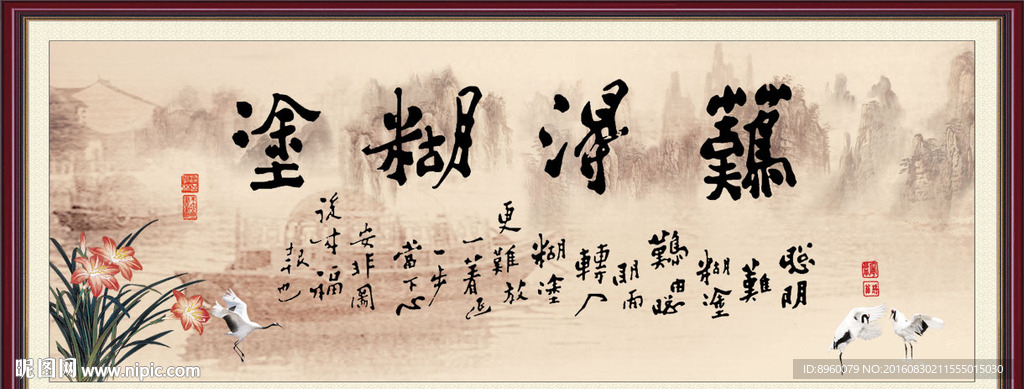 難得糊塗
聰明
難
糊塗
難由聰
明而
轉入
糊塗
更難放
一著退
一步
當下心
安非圖
後來福
報也
昵图网 www.nipic.com
ID:8960079 NO:20160830211555015030